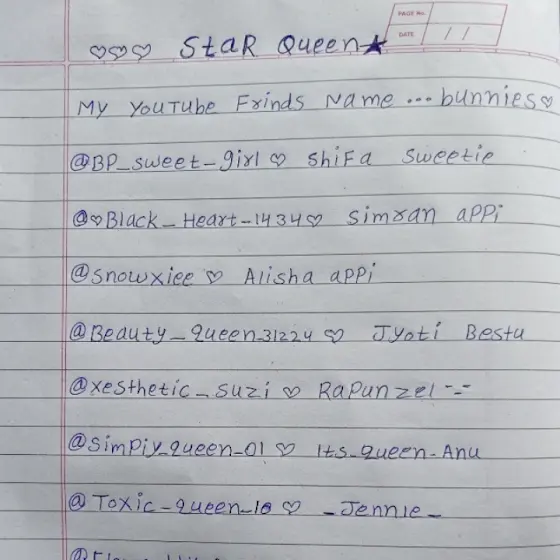 PAGE No.
DATE / /
♡♡♡ StaR Queen★
My YouTube Frinds Name ... bunnies♡
@BP_sweet_girl ♡ ShiFa Sweetie
@♡Black_Heart_1434♡ Simran appi
@snowxiee ♡ Alisha appi
@Beauty_queen_31224 ♡ Jyoti Bestu
@xesthetic_suzi ♡ Rapunzel -.-
@Simpiy_queen_01 ♡ Its_queen-Anu
@Toxic_queen_10 ♡ _Jennie_